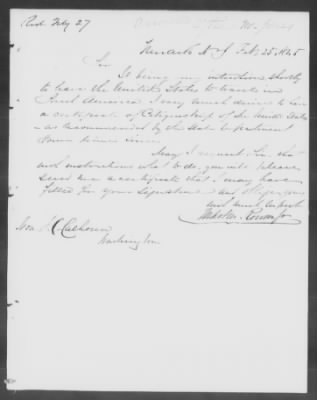 Recd Feby 27
Newark N J Feb 25 1845
Sir
It being my intentions shortly
to leave the United States to travel in
South America I very much desire to have
a certificate of Citizenship of the United States
as recommended by the State Department
some time since
May I request Sir that
instructions what to do you will please
send me a certificate that I may have
filled for your Signature and oblige you
with much respect
Hon J C Calhoun
Washington